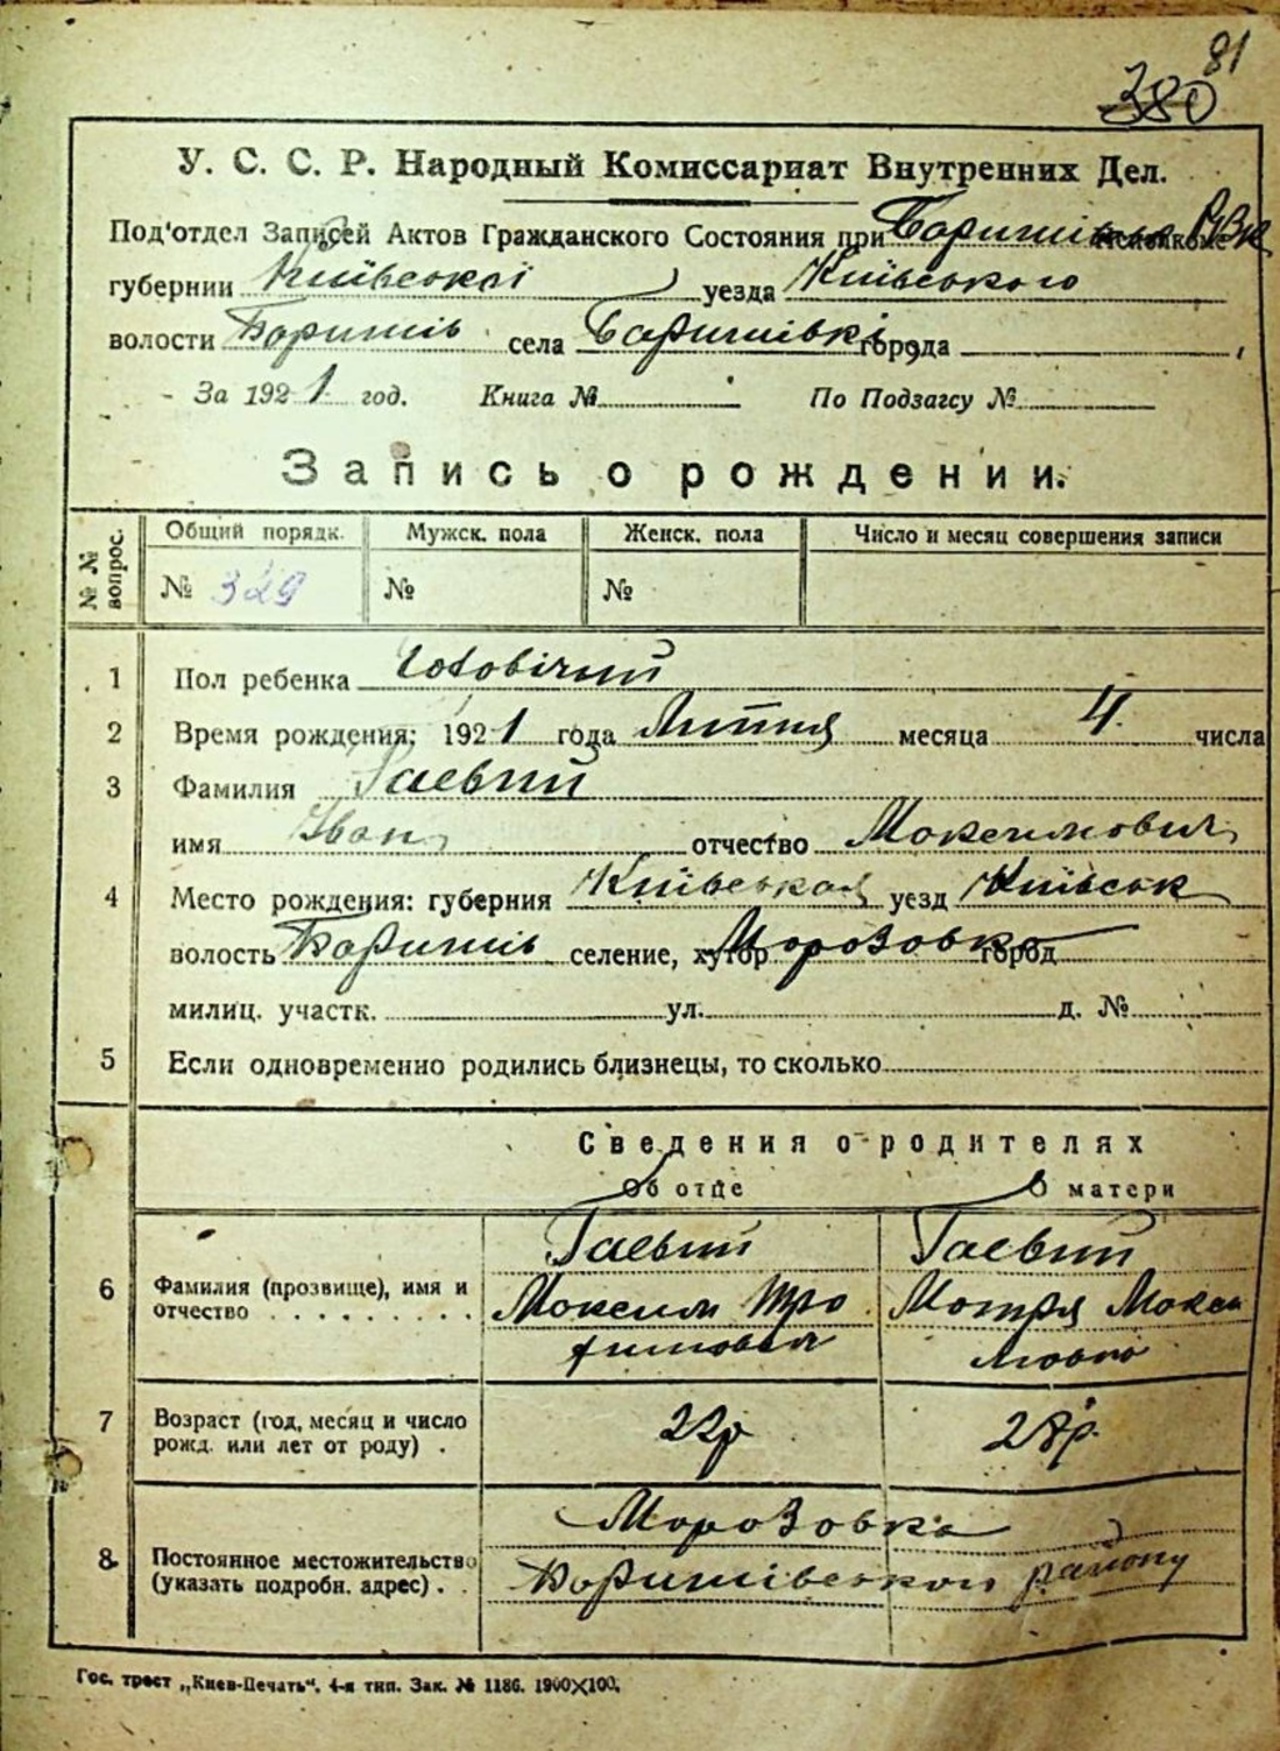 81
380
У. С. С. Р. Народный Комиссариат Внутренних Дел.
Под'отдел Записей Актов Гражданского Состояния при Баришівськ РВК
губернии Київської уезда Київського
волости Баришів села Баришівкі города
За 1921 год. Книга № По Подзагсу №
Запись о рождении.
№ № вопрос. Общий порядк. Мужск. пола Женск. пола Число и месяц совершения записи
№ 329 № №
1 Пол ребенка чоловічий
2 Время рождения: 1921 года Липня месяца 4 числа
3 Фамилия Гаевий
имя Иван отчество Максимович
4 Место рождения: губерния Київська уезд Київськ
волость Баришів селение, хутор Морозовка город
милиц. участк. ул. д. №
5 Если одновременно родились близнецы, то сколько
Сведения о родителях
Об отце О матери
Гаевий Гаевий
6 Фамилия (прозвище), имя и Максим Тро Мотря Макси
отчество фимович мовна
7 Возраст (год, месяц и число 22р 28р.
рожд. или лет от роду)
Морозовка
8 Постоянное местожительство Баришівського району
(указать подробн. адрес)
Гос. трест „Киев-Печать“. 4-я тип. Зак. № 1186. 1900×100.